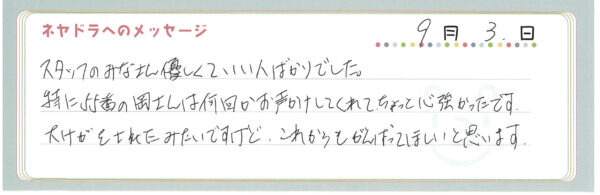 ネヤドラへのメッセージ
9月3.日
スタッフのみなさん優しくていい人ばかりでした。
特に55番の岡さんは何回かお声かけしてくれてちょっと心強かったです.
大けがをされたみたいですけど、これからもがんばってほしいと思います.